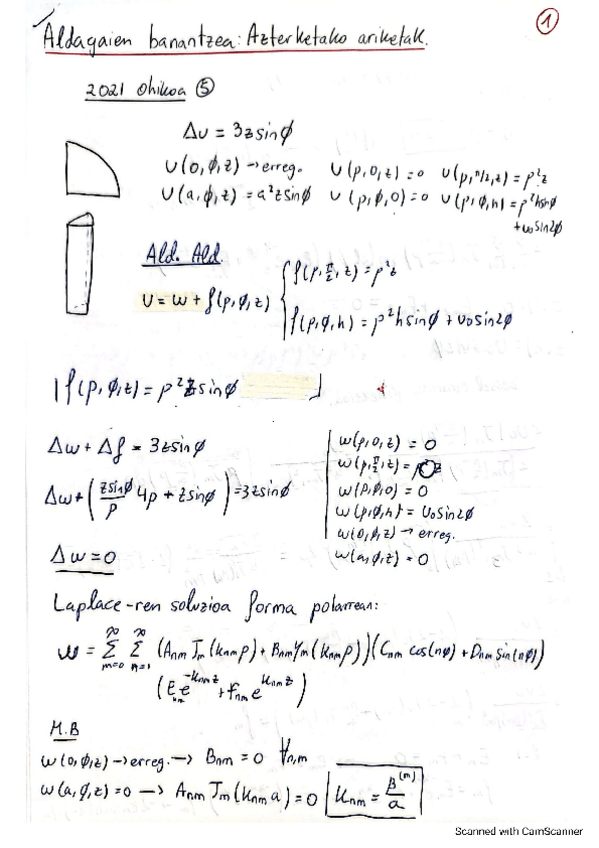 Aldagaien banantzea: Azterketako ariketak.
1
2021 ohikoa ⑤
Δu = 3z sinϕ
u(0,ϕ,z) → erreg. u(ρ,0,z) = 0 u(ρ,π/2,z) = ρ²z
u(a,ϕ,z) = a²z sinϕ u(ρ,ϕ,0) = 0 u(ρ,ϕ,h) = ρ²h sinϕ
+ u₀ sin2ϕ
Ald. Ald.
u = w + f(ρ,ϕ,z) { f(ρ,π/2,z) = ρ²z
f(ρ,ϕ,h) = ρ²h sinϕ + u₀ sin2ϕ
f(ρ,ϕ,z) = ρ²z sinϕ
Δw + Δf = 3z sinϕ
Δw + (z sinϕ/ρ 4ρ + z sinϕ) = 3z sinϕ
Δw = 0
w(ρ,0,z) = 0
w(ρ,π/2,z) = 0
w(ρ,ϕ,0) = 0
w(ρ,ϕ,h) = u₀ sin2ϕ
w(0,ϕ,z) → erreg.
w(a,ϕ,z) = 0
Laplace-ren soluzioa forma polarrean:
w = ∑_{m=0}^{∞} ∑_{n=1}^{∞} (A_{nm} J_m(k_{nm}ρ) + B_{nm} Y_m(k_{nm}ρ)) (C_{nm} cos(nϕ) + D_{nm} sin(nϕ))
(E_{nm} e^{-k_{nm}z} + F_{nm} e^{k_{nm}z})
M.B
w(0,ϕ,z) → erreg. → B_{nm} = 0 ∀n,m
w(a,ϕ,z) = 0 → A_{nm} J_m(k_{nm}a) = 0 k_{nm} = β^{(m)}/a
Scanned with CamScanner